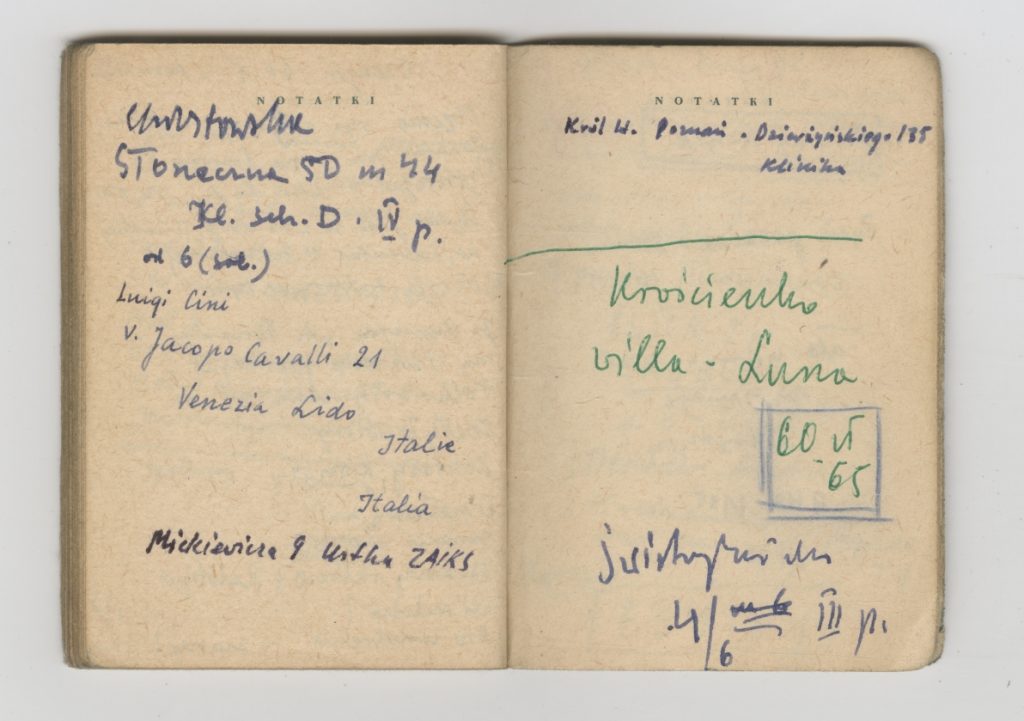 NOTATKI
Chrostowska
Słoneczna 50 m 44
Kl. sch. D. IV p.
od 6 (sob.)
Luigi Cini
V. Jacopo Cavalli 21
Venezia Lido
Italie
Italia
Mickiewicza 9 Ustka ZAIKS
NOTATKI
Król W. Poznań. Dzierżyńskiego 135
Klinika
Krościenko
villa - Luna
60
65
4/6 m 6 III p.